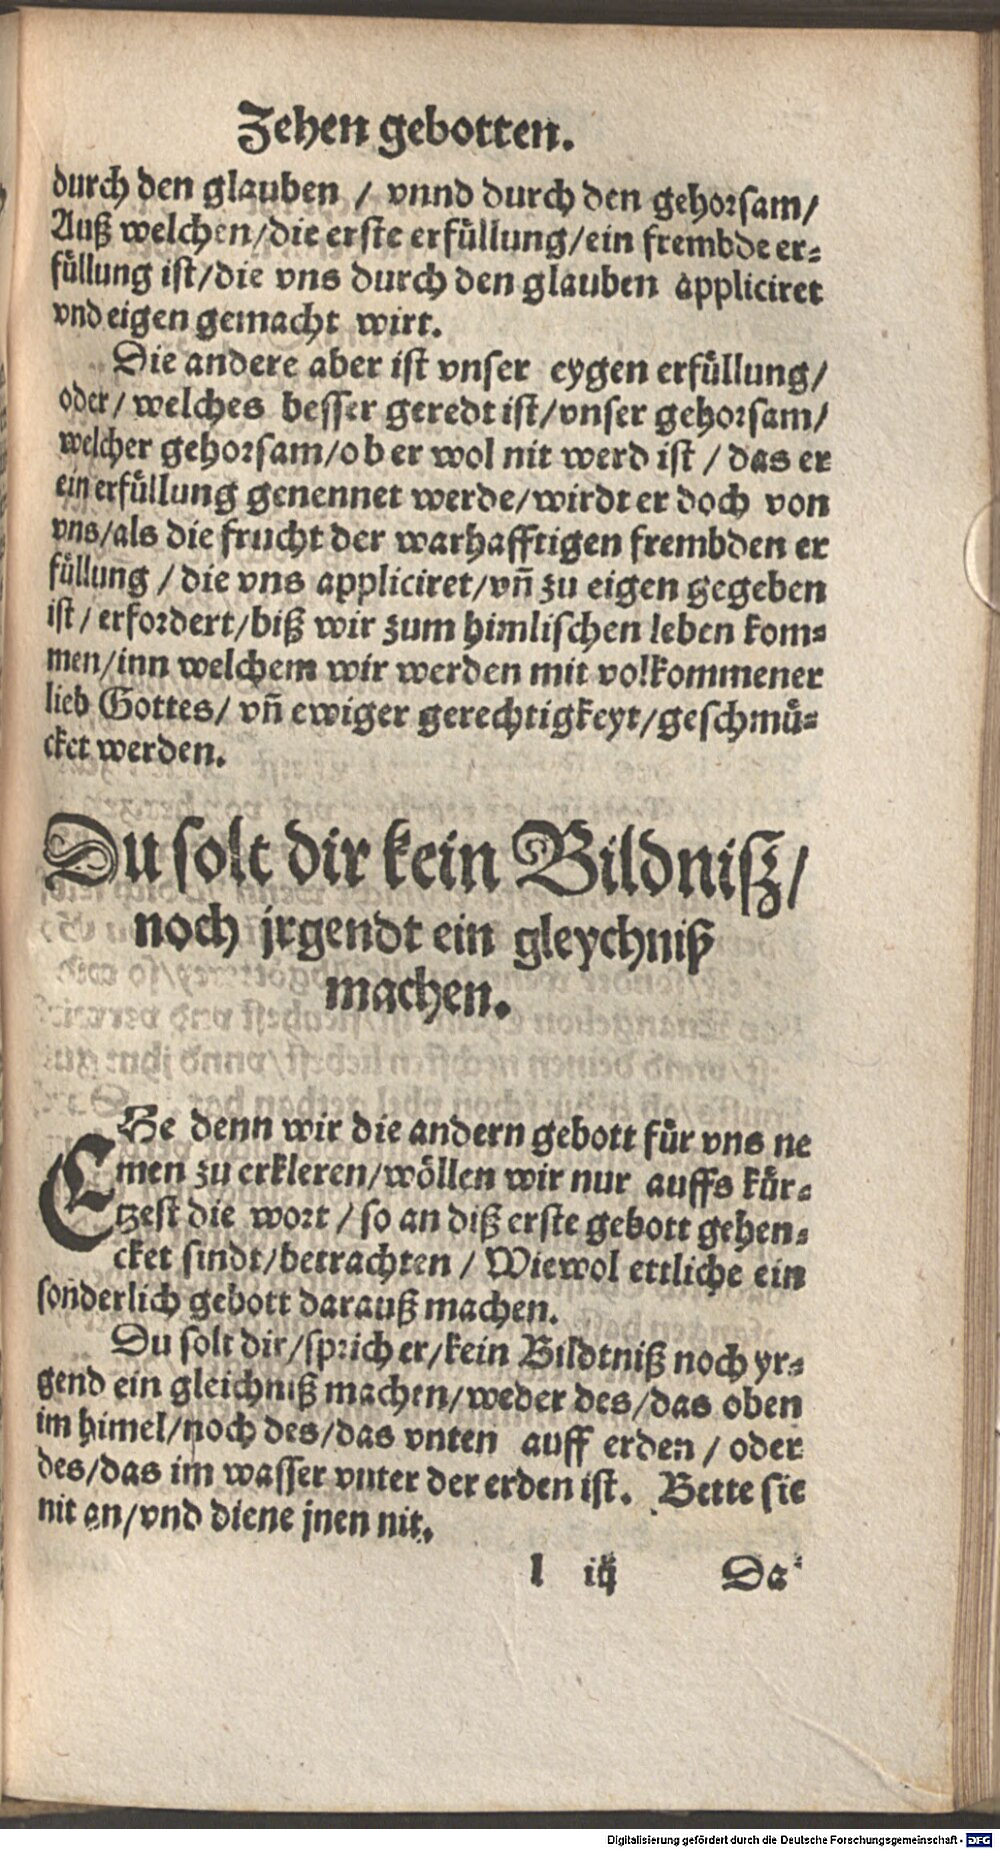 Zehen gebotten.
durch den glauben / vnnd durch den gehorsam/
Auß welchen/die erste erfüllung/ein frembde er-
füllung ist/die vns durch den glauben appliciret
vnd eigen gemacht wirt.
Die andere aber ist vnser eygen erfüllung/
oder/ welches besser geredt ist/vnser gehorsam/
welcher gehorsam/ob er wol nit werd ist / das er
ein erfüllung genennet werde/wirdt er doch von
vns/als die frucht der warhafftigen frembden er
füllung / die vns appliciret/vñ zu eigen gegeben
ist/ erfordert/biß wir zum himlischen leben kom-
men/inn welchem wir werden mit volkommener
lieb Gottes/ vñ ewiger gerechtigkeyt/geschmü-
cket werden.
Du solt dir kein Bildniß/
noch jrgendt ein gleychniß
machen.
EHe denn wir die andern gebott für vns ne
men zu erkleren/wöllen wir nur auffs kür-
tzest die wort / so an diß erste gebott gehen-
cket sindt/betrachten / Wiewol ettliche ein
sonderlich gebott darauß machen.
Du solt dir/sprich er/kein Bildtniß noch yr-
gend ein gleichniß machen/weder des/das oben
im himel/noch des/das vnten auff erden / oder
des/das im wasser vnter der erden ist. Bette sie
nit an/vnd diene jnen nit.
l iij Da
Digitalisierung gefördert durch die Deutsche Forschungsgemeinschaft - DFG